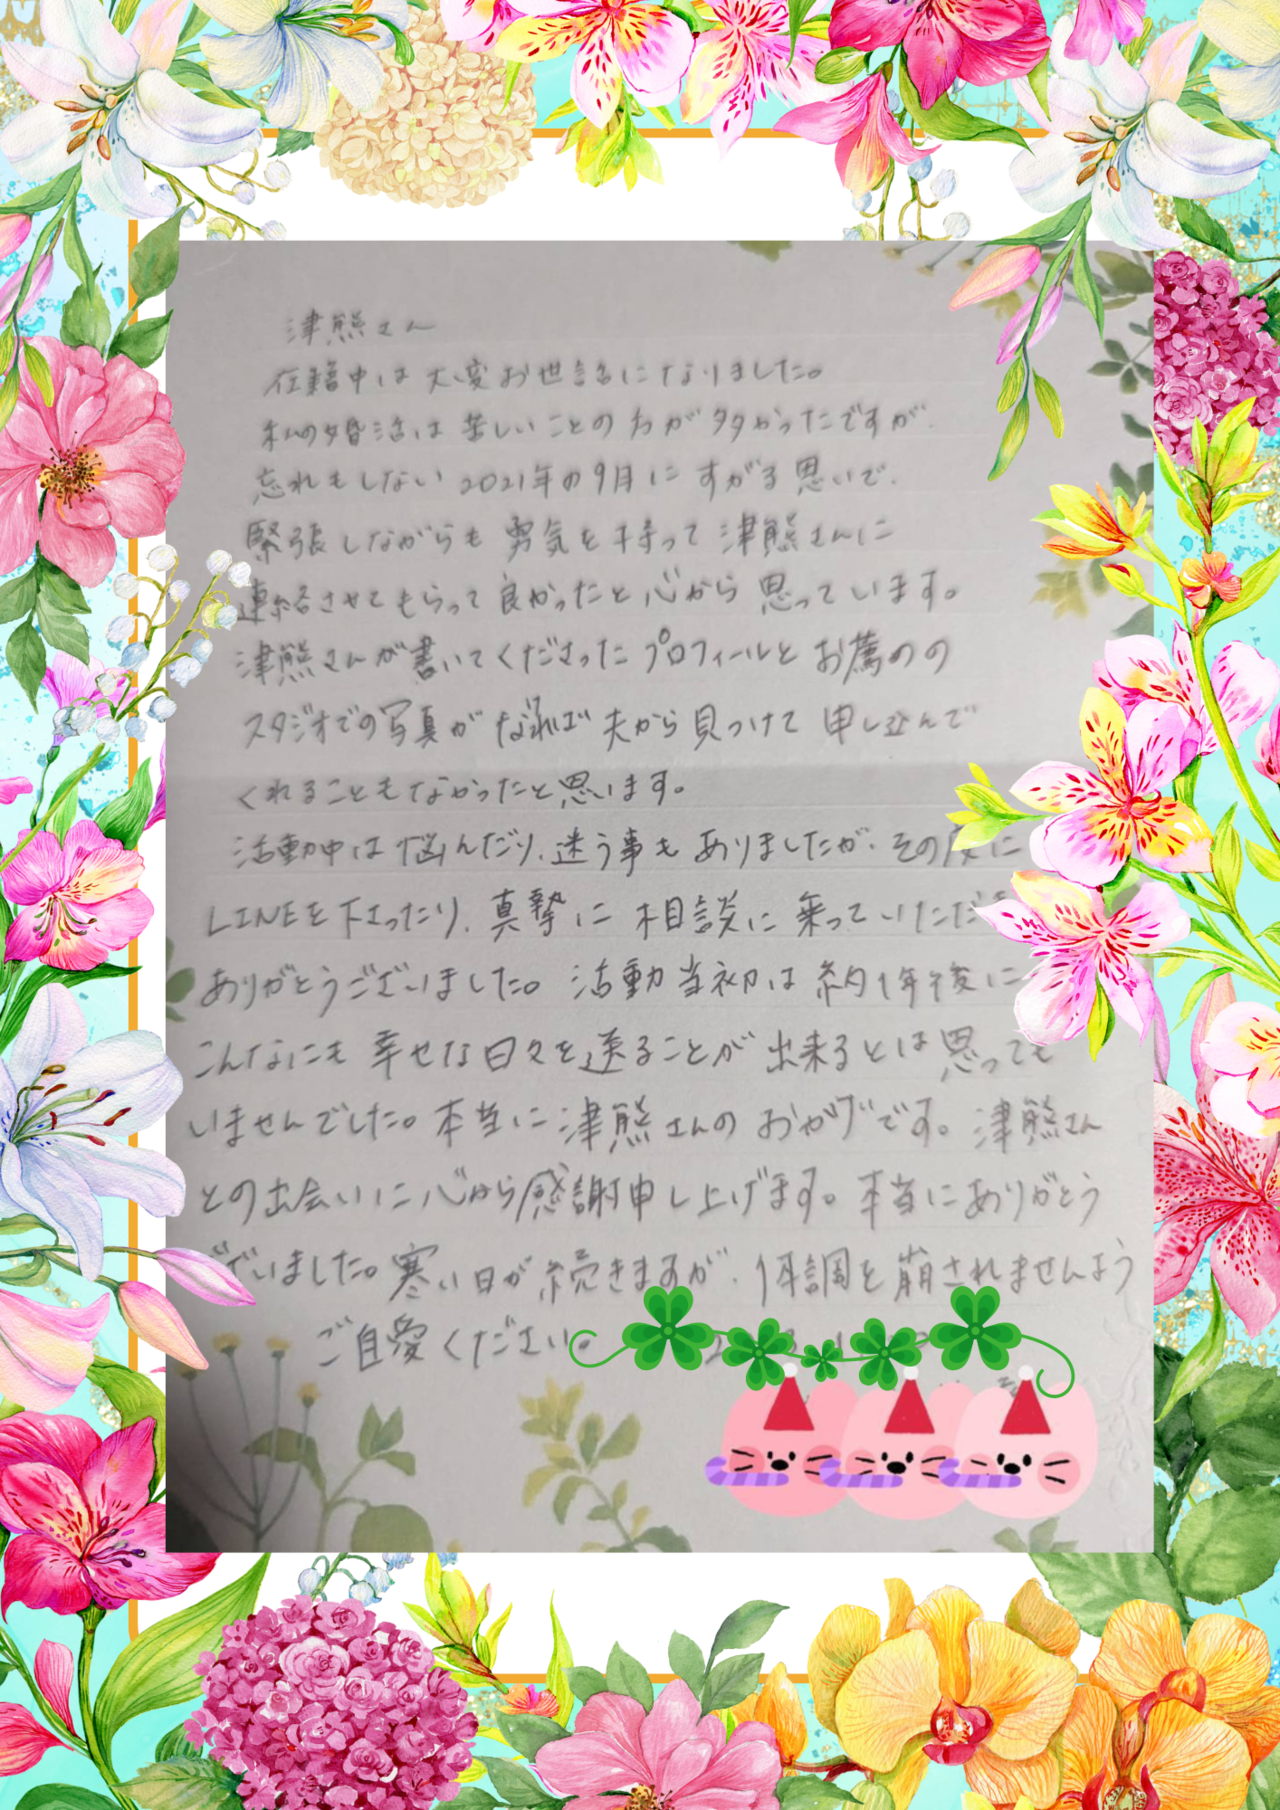 津熊さん
在籍中は大変お世話になりました。
私の婚活は苦しいことの方が多かったですが、
忘れもしない2021年の9月にすがる思いで、
緊張しながらも勇気を持って津熊さんに
連絡させてもらって良かったと心から思っています。
津熊さんが書いてくださったプロフィールとお薦めの
スタジオでの写真がなければ夫から見つけて申し込んで
くれることもなかったと思います。
活動中は悩んだり、迷う事もありましたが、その度に
LINEを下さったり、真摯に相談に乗っていただ
ありがとうございました。活動当初は約1年後に
こんなにも幸せな日々を送ることが出来るとは思っても
いませんでした。本当に津熊さんのおかげです。津熊さん
との出会いに心から感謝申し上げます。本当にありがとう
ざいました。寒い日が続きますが、体調を崩されませんよう
ご自愛ください。